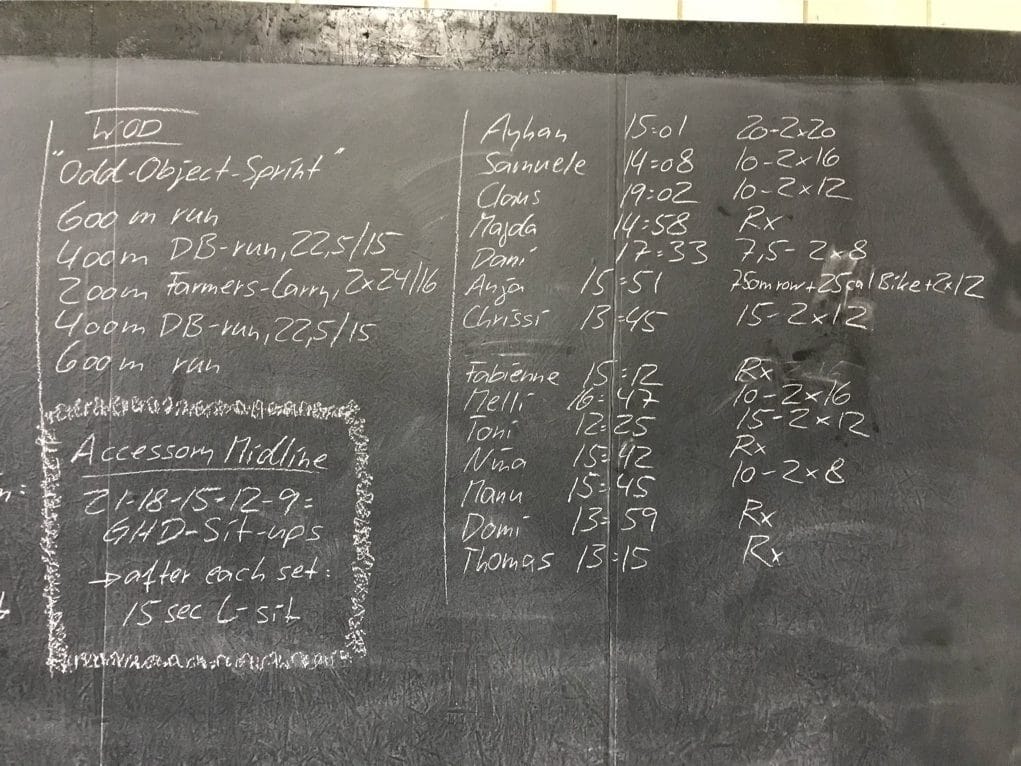 WOD
"Odd-Object-Sprint"
600 m run
400m DB-run, 22,5/15
200m Farmers-Carry, 2x24/16
400m DB-run, 22,5/15
600 m run
Accessory Midline
21-18-15-12-9:
GHD-Sit-ups
→after each set:
15 sec L-sit
Ayhan 15:01 20-2x20
Samuele 14:08 10-2x16
Claus 19:02 10-2x12
Majda 14:58 Rx
Dani 17:33 7,5-2x8
Anja 15:51 750m row+25cal Bike+2x12
Chrissi 13:45 15-2x12
Fabienne 15:12 Rx
Melli 16:47 10-2x16
Toni 12:25 15-2x12
Nina 15:42 Rx
Manu 15:45 10-2x8
Domi 13:59 Rx
Thomas 13:15 Rx